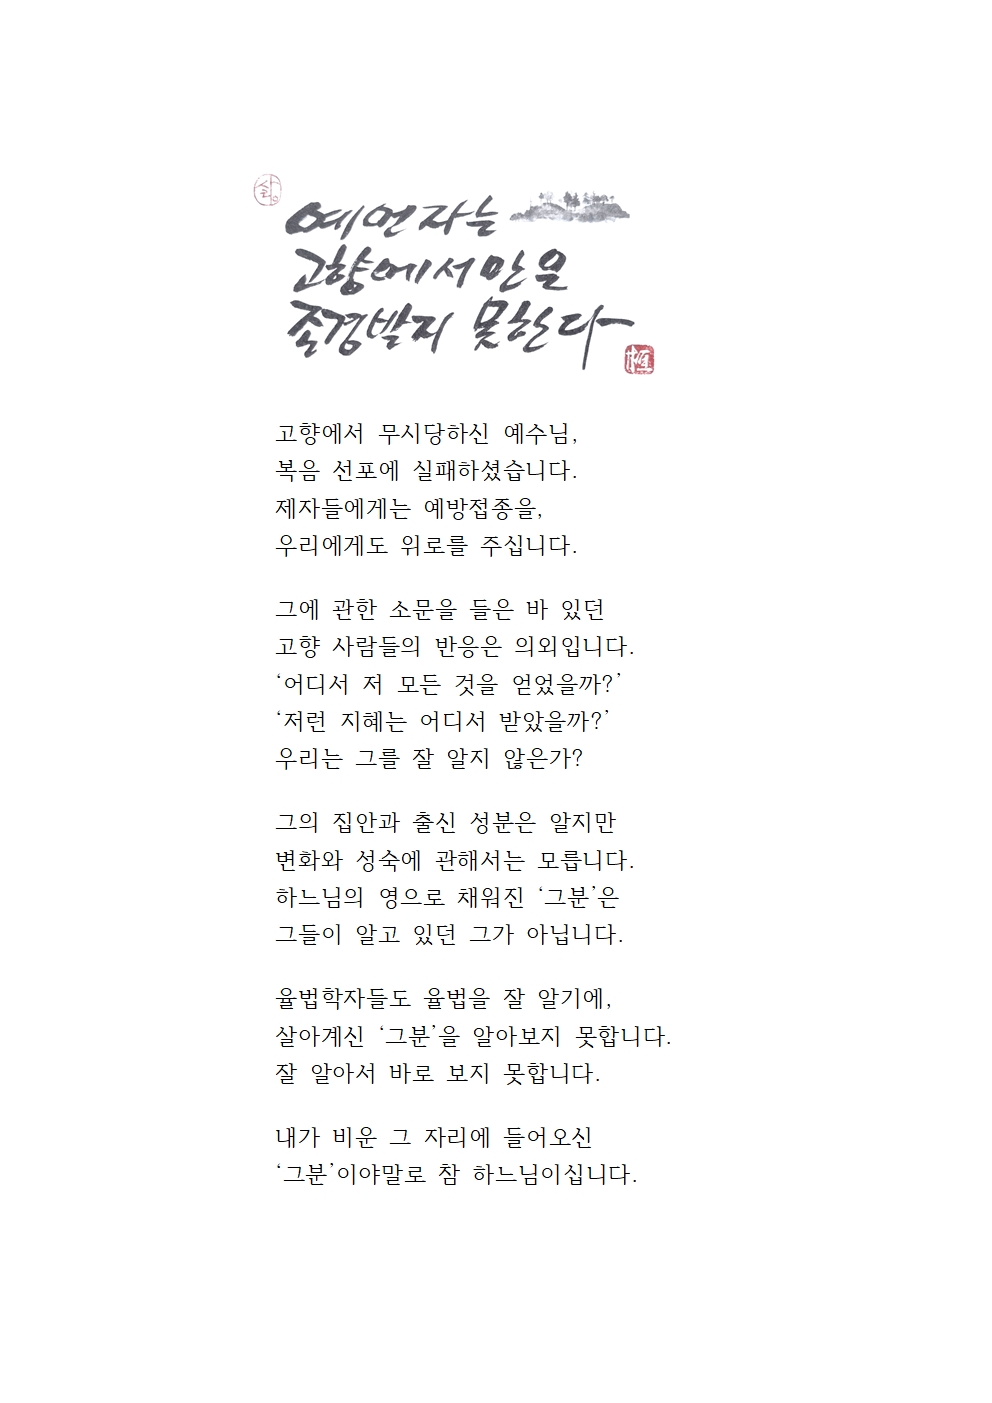 예언자는
고향에서만은
존경받지 못한다
고향에서 무시당하신 예수님,
복음 선포에 실패하셨습니다.
제자들에게는 예방접종을,
우리에게도 위로를 주십니다.
그에 관한 소문을 들은 바 있던
고향 사람들의 반응은 의외입니다.
‘어디서 저 모든 것을 얻었을까?’
‘저런 지혜는 어디서 받았을까?’
우리는 그를 잘 알지 않은가?
그의 집안과 출신 성분은 알지만
변화와 성숙에 관해서는 모릅니다.
하느님의 영으로 채워진 ‘그분’은
그들이 알고 있던 그가 아닙니다.
율법학자들도 율법을 잘 알기에,
살아계신 ‘그분’을 알아보지 못합니다.
잘 알아서 바로 보지 못합니다.
내가 비운 그 자리에 들어오신
‘그분’이야말로 참 하느님이십니다.